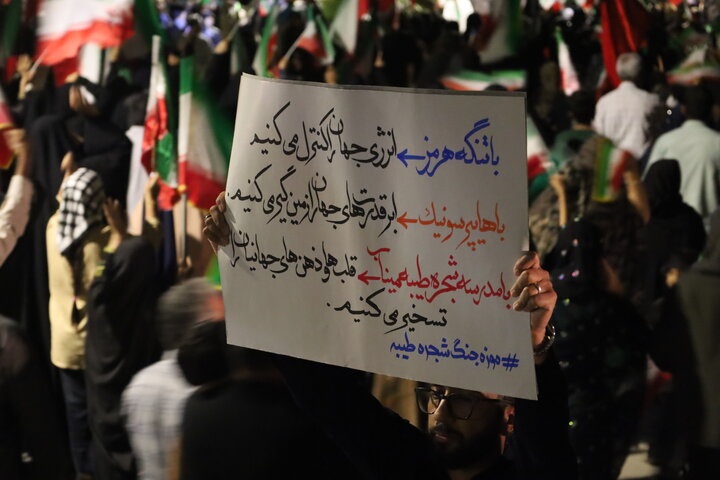 با تنگه هرمز ← انرژی جهان را کنترل می‌کنیم.
با هایپرسونیک ← ابرقدرت‌های جهان را زمین گیر می‌کنیم.
با مدرسه شجره طیبه میناب ← قلب‌ها و ذهن‌های جهانیان را
تسخیر می‌کنیم.
#موزه جنگ شجره طیبه